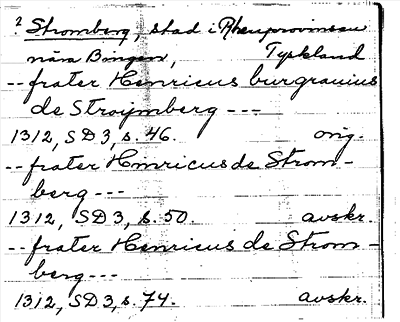 ² Stromberg, stad i Rhenprovinsen
nära Bingen, Tyskland
-- frater Henricus burgrauius
de Stroymberg ---
1312, SD3, s. 46. orig.
-- frater Henricus de Strom-
berg ---
1312, SD3, s. 50. avskr.
-- frater Henricus de Strom-
berg ---
1312, SD3, s. 74. avskr.